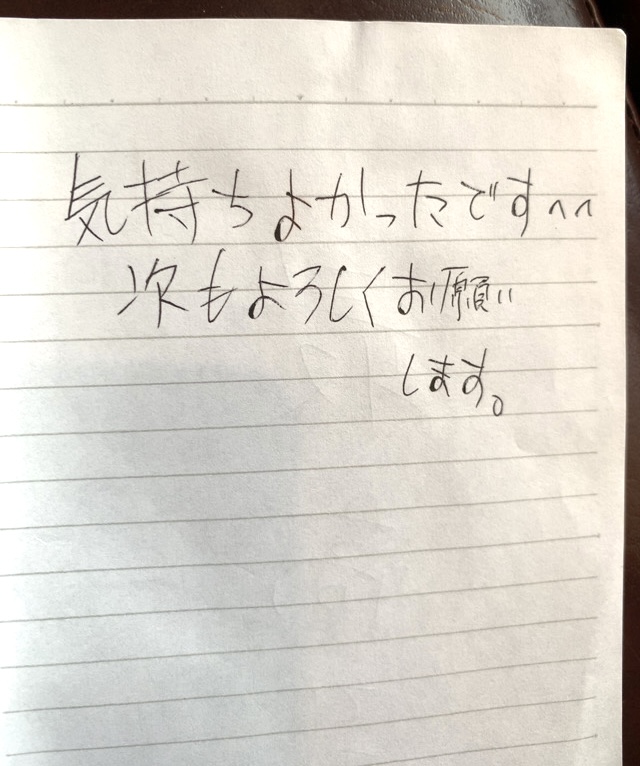 気持ちよかったです^^
次もよろしくお願い
します。